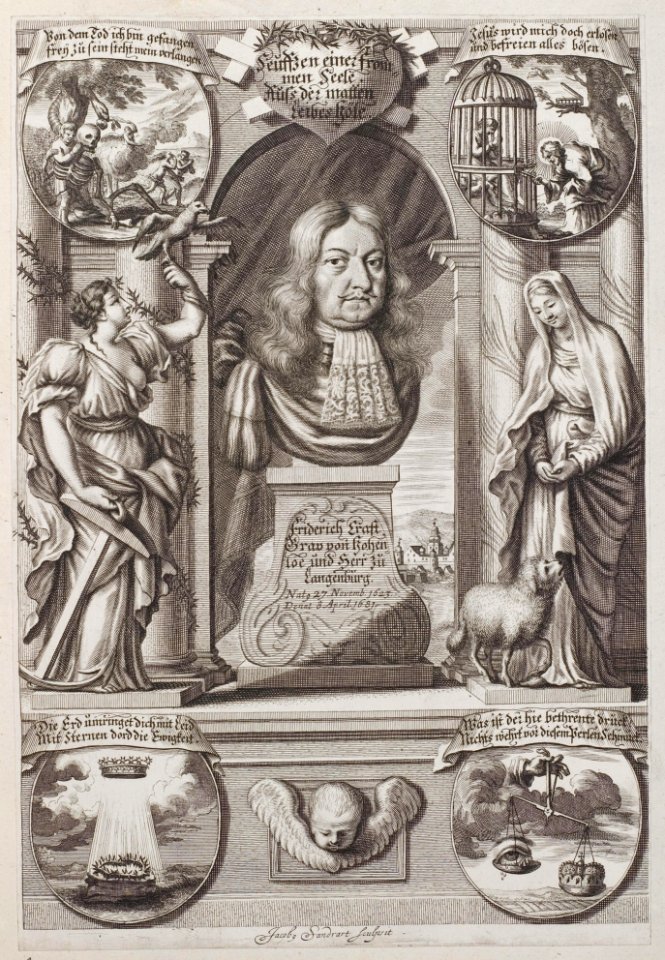 Von dem Tod ich bin gefangen
frey zu sein steht mein verlangen
Seufftzen einer from
men Seele
Auſz der matten
Leibes Höle
Jesus wird mich doch erlosen
und befreien alles bösen.
Friderich Craft
Grav von Hohen
loe und Herr zu
Langenburg.
Nat, 27 Novemb. 1623
Denat 8 April 1681
Die Erd umringet dich mit Leid
Mit Sternen dord die Ewigkeit
Was ist der hie bethrente druck
Nichts wehrt vor diesem Perlen Schmuck
Jacobo Sandrart Sculpsit